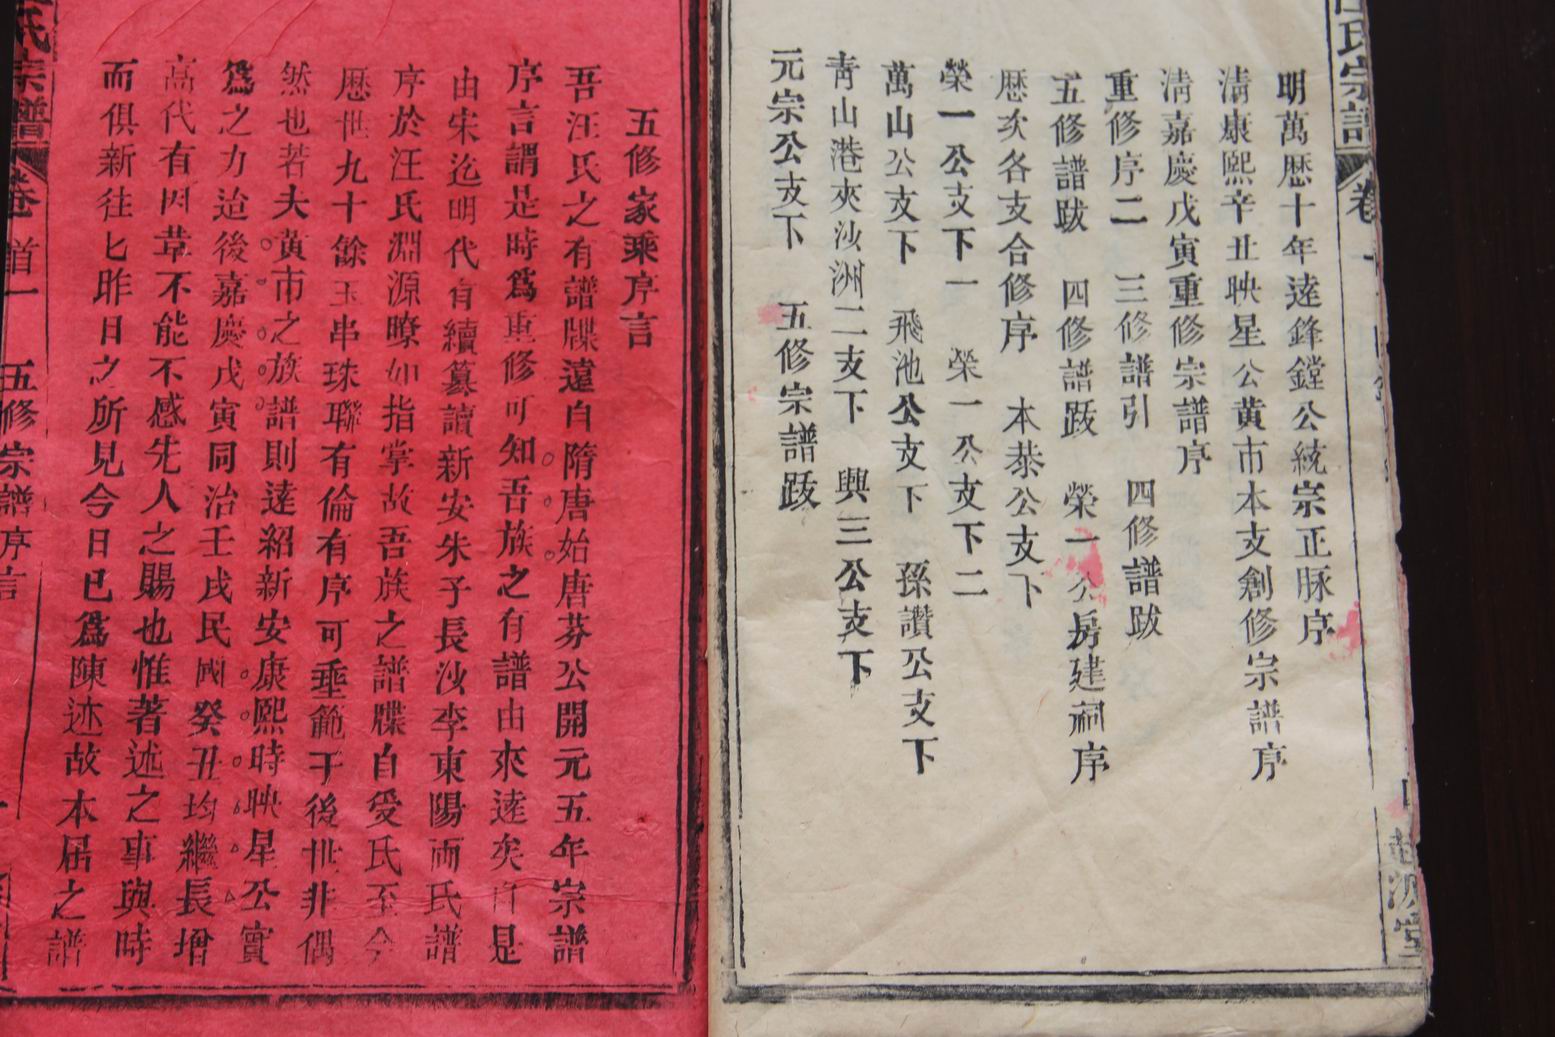 氏宗譜
卷
明萬歷十年逵鋒鏜公統宗正脉序
淸康熙辛丑映星公黄市本支創修宗譜序
淸嘉慶戊寅重修宗譜序
重修序二 三修譜引 四修譜跋
五修譜跋 四修譜跋 榮一公房建祠序
歷次各支合修序 本恭公支下
榮一公支下一 榮一公支下二
萬山公支下 飛池公支下 孫讚公支下
靑山港夾沙洲二支下 興三公支下
元宗公支下 五修宗譜跋
五修家乘序言
吾汪氏之有譜牒遠自隋唐始唐芬公開元五年宗譜
序言謂是時爲重修可知吾族之有譜由來逵矣自是
由宋迄明代有續纂讀新安朱子長沙李東陽兩氏譜
序於汪氏淵源瞭如指掌故吾族之譜牒自受氏至今
歷世九十餘玉串珠聯有倫有序可垂範于後世非偶
然也若夫黄市之族譜則逵紹新安康熙時映星公實
爲之力迨後嘉慶戊寅同治壬戌民國癸丑均繼長增
高代有因革不能不感先人之賜也惟著述之事與時
而俱新往匕昨日之所見今日已爲陳迹故本届之譜
氏宗譜
卷首一
五修宗譜序言